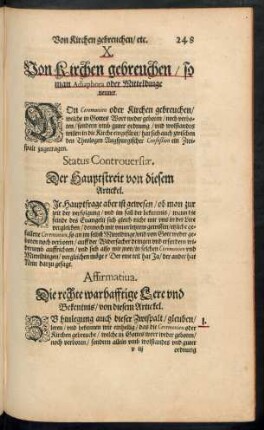 Von Kirchen gebreuchen/ etc. 248
X.
Von Kirchen gebreuchen/ so
man Adiaphora oder Mitteldinge
nennet.
VOn Ceremonien oder Kirchen gebreuchen/
welche in Gottes Wort weder geboten/ noch verbo-
ten/ sondern vmb guter ordnung vnd wolstandes
willen in die Kirche eingefürt/ hat sich auch zwischen
den Theologen Augspurgischer Confession ein Zwi-
spalt zugetragen.
Status Controuersiæ.
Der Hauptstreit von diesem
Artickel.
DIe Hauptfrage aber ist gewesen/ ob man zur
zeit der verfolgung/ vnd im fall der bekentnis/ man die
feinde des Euangelij sich gleich nicht mit vns in der Lere
vergleichen/ dennoch mit vnuerletztem gewissen etliche ge-
fallene Ceremonien, so an im selbst Mitteldinge/ vnd von Gott weder ge-
boten noch verboten/ auff der Widersacher dringen vnd erfordern wi-
derumb auffrichten/ vnd sich also mit jnen in solchen Ceremonien vnd
Mitteldingen/ vergleichen möge? Der eine teil hat Ja/ der ander hat
Nein darzu gesagt.
Affirmatiua.
Die rechte warhafftige Lere vnd
Bekentnis/ von diesem Artickel.
ZV hinlegung auch dieser Zwispalt/ gleuben/
leren/ vnd bekennen wir einhellig/ das die Ceremonien oder
Kirchen gebreuche/ welche in Gottes wort weder geboten/
noch verboten/ sondern allein vmb wolstandes vnd guter
1.
ordnung